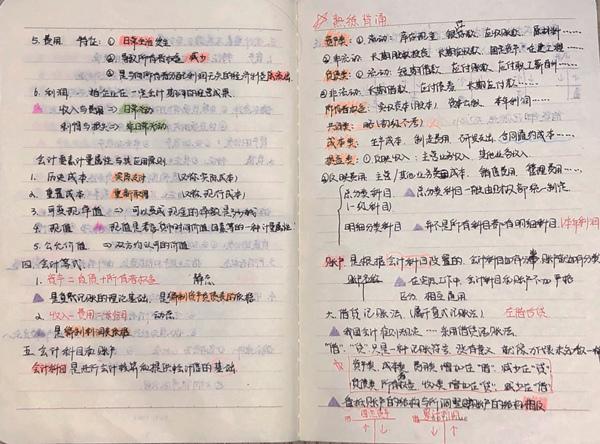 5. 费用 特征：① 日常活动发生
② 导致所有者权益 减少
③ 是与向所有者分配利润无关的经济利益总流出
6. 利润 指企业在一定会计期间的经营成果
收入与费用 => 日常活动
利得与损失 => 非日常活动
会计要素计量属性与其应用原则
1. 历史成本 实际成本 (又称实际成本)
2. 重置成本 (又称现行成本)
3. 可变现净值 =>
4. 现值 => 现值是考虑货币时间价值因素等的一种计量属性
5. 公允价值 => 双方均认可的价值
四 会计等式
1. 资产 = 负债 + 所有者权益 静态
是复式记账的理论基础，是编制资产负债表的依据
2. 收入 - 费用 = 利润 动态
是编制利润表依据
五 会计科目和账户
会计科目是进行会计核算和提供会计信息的基础
熟练背诵
资产类：① 流动：库存现金 银行存款 应收账款 原材料……
② 非流动：长期股权投资 长期应收款 固定资产 在建工程
负债类：① 流动：短期借款 应付账款 应付职工薪酬
② 非流动：长期借款 应付债券 长期应付款……
所有者权益：实收资本(股本) 资本公积 本年利润……
共同类：略
成本类：生产成本 制造费用 研发支出 合同履约成本……
损益类：① 反映收入：主营业务收入 其他业务收入
② 反映费用：主营/其他业务成本 销售费用 管理费用……
总分类科目 总分类科目一般由财政部统一制定
(一级科目)
明细分类科目 并不是所有科目都有明细科目 (本年利润)
账户 是根据会计科目设置的
在实际工作中，会计科目和账户不加严格
区分 相互通用
六 借贷记账法 (属于复式记账法) 左借右贷
我国会计准则规定…… 采用借贷记账法
"借" "贷" 只是一种记账符号
资产类、成本类、费用 增加在"借"，减少在"贷"
负债类、所有者权益、收入类 增加在"贷"，减少在"借"
备抵账户的结构与所调整账户的结构相反
累计折旧